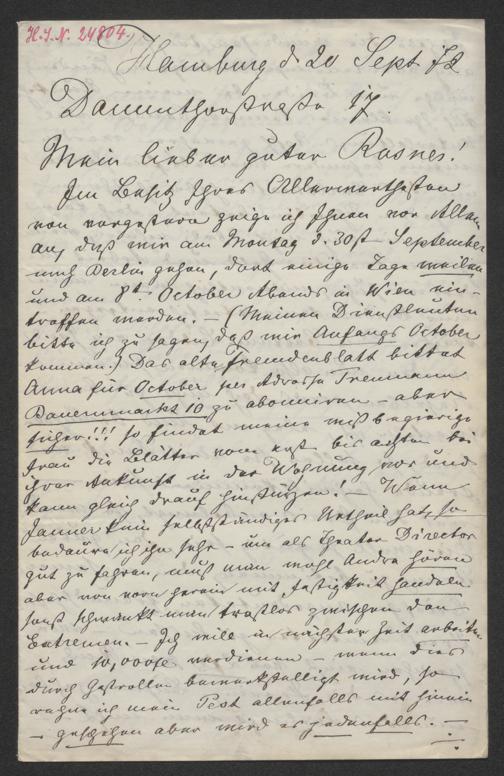 H.I.N. 24804.
Hamburg d 20 Sept 72
Dammthorstraße 17.
Mein lieber guter Rosner!
Im Besitz Ihres Allerwerthesten
von vorgestern zeige ich Ihnen vor Allem
an, daß wir am Montag d. 30st September
nach Berlin gehen, dort einige Tage weilen
und am 8t October Abends in Wien ein-
treffen werden. – (Meinen Dienstleuten
bitte ich zu sagen, daß wir Anfangs October
kommen.) Das alte Fremdenblatt bittet
Anna für October per Adresse Treumann
Bauernmarkt 10 zu abonniren – aber
sicher!!! so findet meine wißbegierige
Frau die Blätter vom erst bis achten bei
ihrer Ankunft in der Wohnung vor und
kann gleich drauf hinstürzen! – Wenn
Jauner kein selbstständiges Urtheil hat, so
bedaure ich ihn sehr – um als Theater Director
gut zu fahren, muß man wohl Andre hören
aber von vorn herein mit Festigkeit handeln
sonst schwankt man trostlos zwischen den
Extremen. – Ich will in nächster Zeit arbeiten
und 10,000 verdienen – wenn dies
durch Gastrollen bewerkstelligt wird, so
rechne ich mein Pest allenfalls mit hinein
– geschehen aber wird es jedenfalls. –